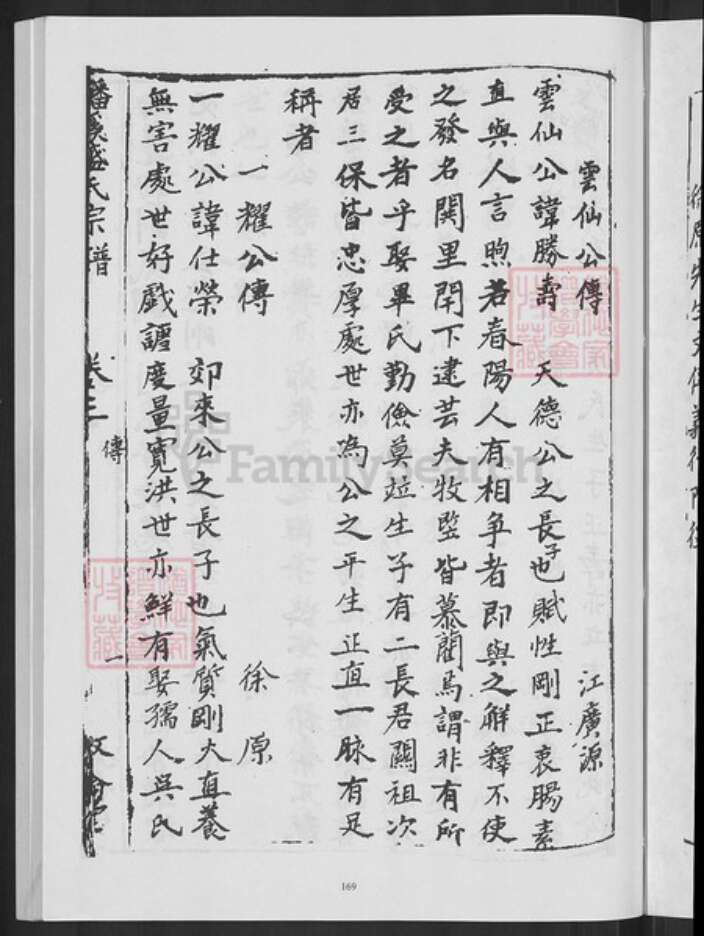 雲仙公傳 江廣源
雲仙公諱勝壽 天德公之長子也賦性剛正衷腸素
直與人言煦若春陽人有相爭者即與之解釋不使
之發名聞里閈下逮芸夫牧豎皆慕藺焉謂非有所
受之者乎娶畢氏勤儉莫竝生子有二長君關祖次
君三保皆忠厚處世亦為公之平生正直一脉有足
稱者
一耀公傳 徐原
一耀公諱仕榮 郊來公之長子也氣質剛大直養
無害處世好戲謔度量寬洪世亦鮮有娶孺人吳氏
氏宗譜 卷三 傳 一
FamilySearch
169